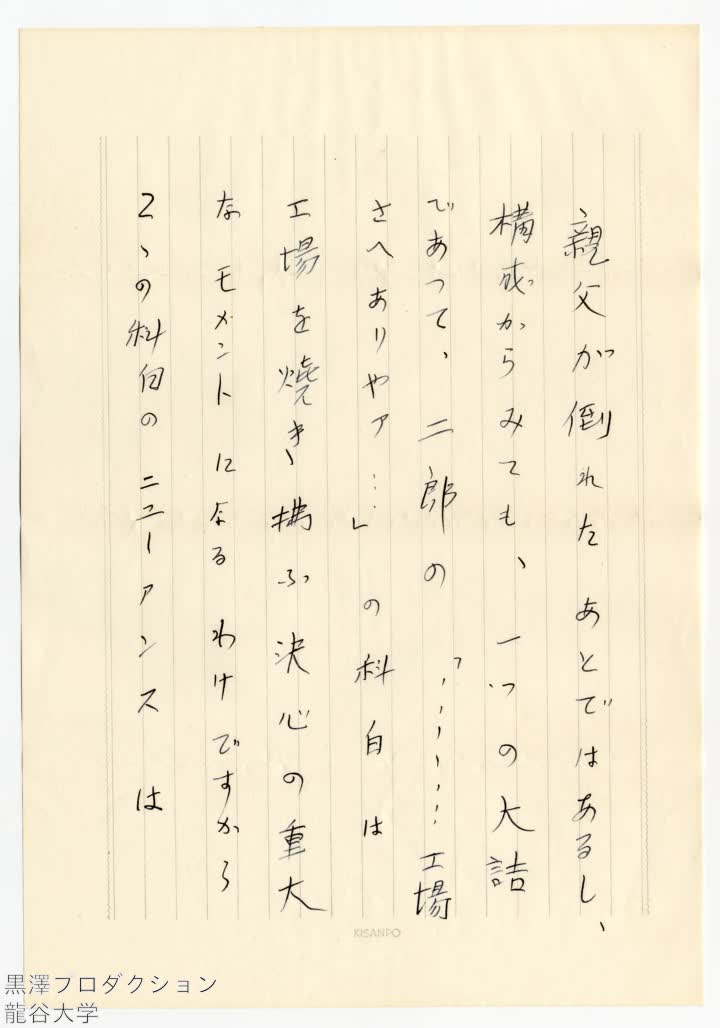 親父が倒れたあとではあるし、
構成からみても、一つの大詰
であつて、二郎の「……工場
さへありやァ…」の科白は
工場を焼き拂ふ決心の重大
なモメントになるわけですから
こゝの科白のニューアンスは
KISANPO
黒澤プロダクション
龍谷大学